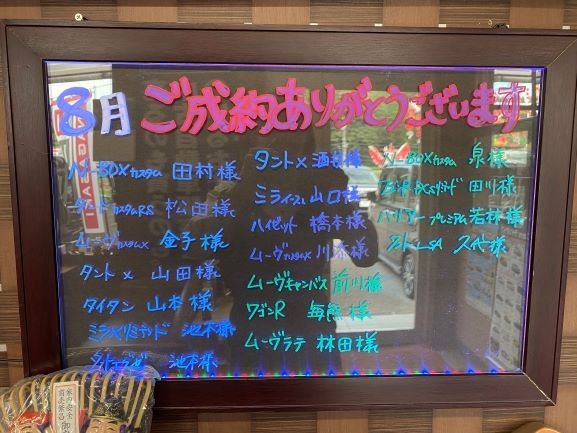 8月 ご成約ありがとうございます
N-BOXカスタム 田村様
タントカスタムRS 松田様
ムーヴカスタムX 金子様
タントX 山田様
タイタン 山本様
ミラXリミテッド 池本様
池本様
タントX 酒井様
ミライースL 山口様
ハイゼット 橋本様
ムーヴカスタムX
ムーヴキャンバス 前川様
ワゴンR 毎熊様
ムーヴラテ 林田様
N-BOXカスタム 泉様
ワゴンR 田川様
ハリアープレミアム 若林様
様